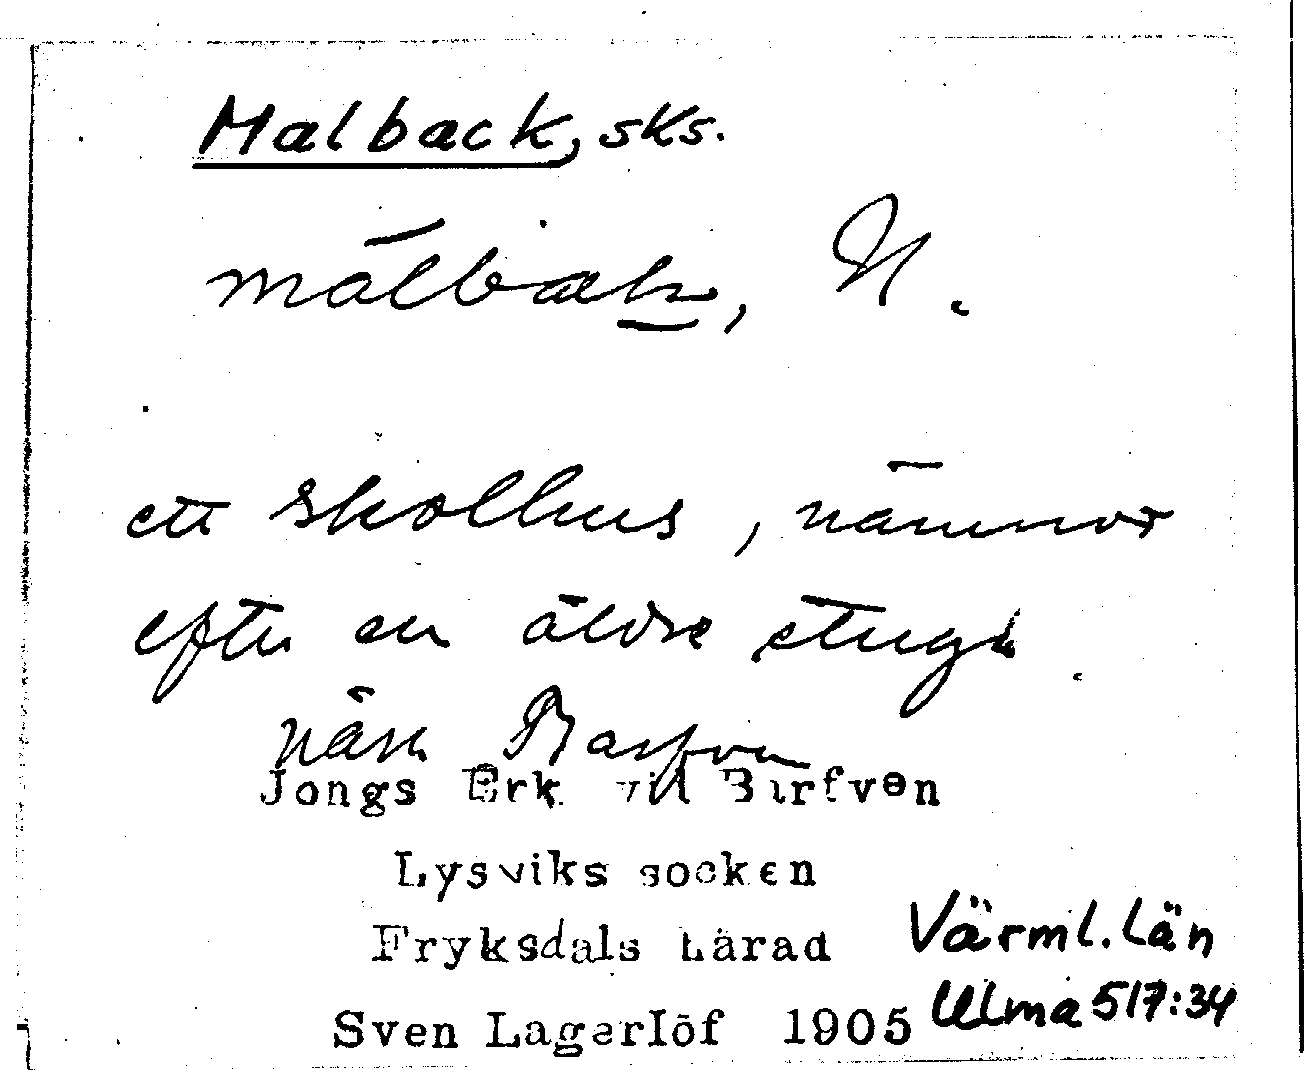 Malback, sks.
målbak, N.
ett skolhus, nämnes
efter en äldre stuga
när Barfven
Jongs Erk vid Barfven
Lysviks socken
Fryksdals härad Värml. län
Sven Lagerlöf 1905 Ulma 517:34